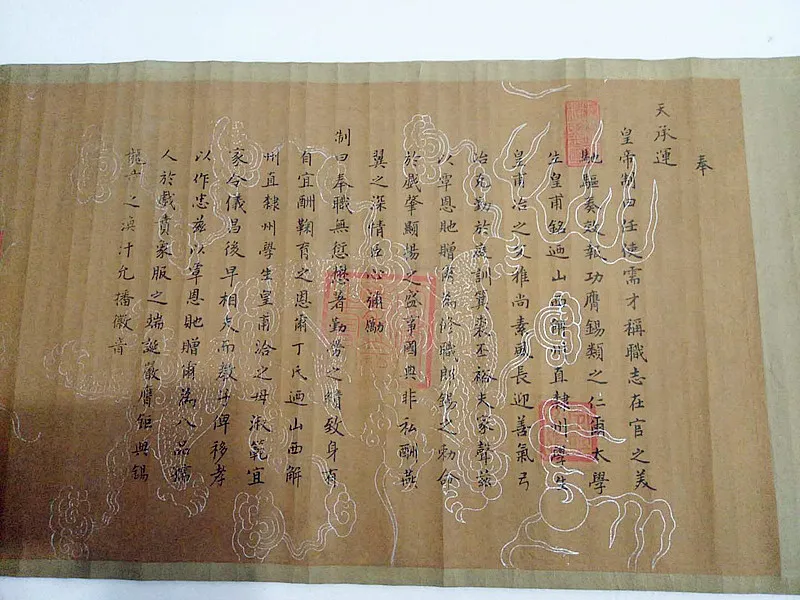 奉
天承運
皇帝制曰任使需才稱職志在官之美
馳驅奏效報功膺錫類之仁爾太學
生皇甫銘迺山西解州直隸州學生
皇甫冶之父雅尚素風長迎善氣弓
冶克勤於庭訓箕裘丕裕夫家聲茲
以覃恩貤贈爾為修職郎錫之勑命
於戲肇顯揚之盛事國典非私酬燕
翼之深情臣心彌勵
制曰奉職無愆懋著勤勞之績致身有
自宜酬鞠育之恩爾丁氏迺山西解
州直隸州學生皇甫洽之母淑範宜
家令儀昌後早相夫而教子俾移孝
以作忠茲以覃恩貤贈爾為八品孺
人於戲賁象服之端誕嚴膺鉅典錫
龍章之渙汗允播徽音